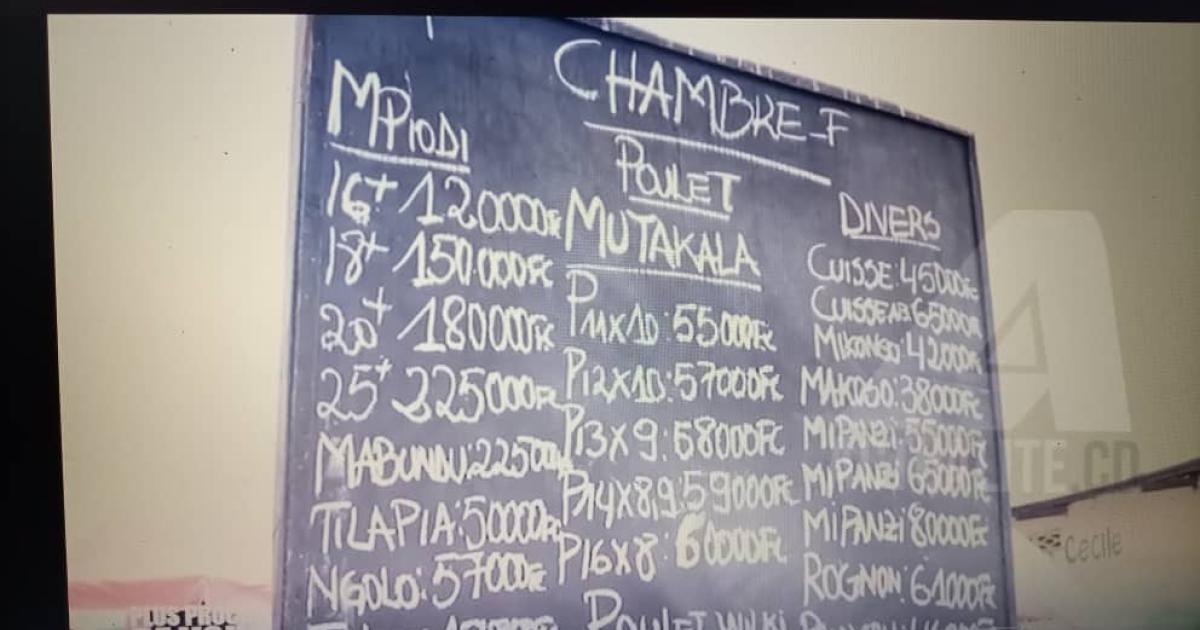 CHAMBRE-F
MPIODI
16+ 120000Fc
18+ 150.000Fc
20+ 180000Fc
25+ 225000Fc
TILAPIA: 50000Fc
NGOLO: 57000Fc
POULET
MUTAKALA
P11X10: 55000Fc
P12X10: 57000Fc
P13X9: 58000Fc
P14X8,9: 59000Fc
P16X8: 60000Fc
POULET
DIVERS
CUISSE: 45000Fc
65000Fc
MIKONGO: 42000Fc
MAKOSO: 38000Fc
MIPANZI: 55000Fc
MIPANZI 65000Fc
MIPANZI 80000Fc
ROGNON: 61000Fc
Cecile
PLUS PROC